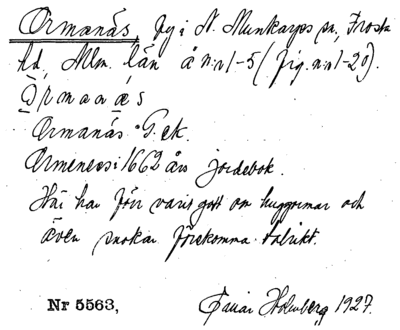 Ormanäs, by i N. Munkarps sn, Frosta
hd, Mlm. län å n:r 1-5 (fig. n:r 1-20).
Ormanäs G. ek.
Ormenees i 1662 års jordebok.
Här har förr varit gott om huggormar och
även snokar förekomma talrikt.
Nr 5563, Holmberg 1927.